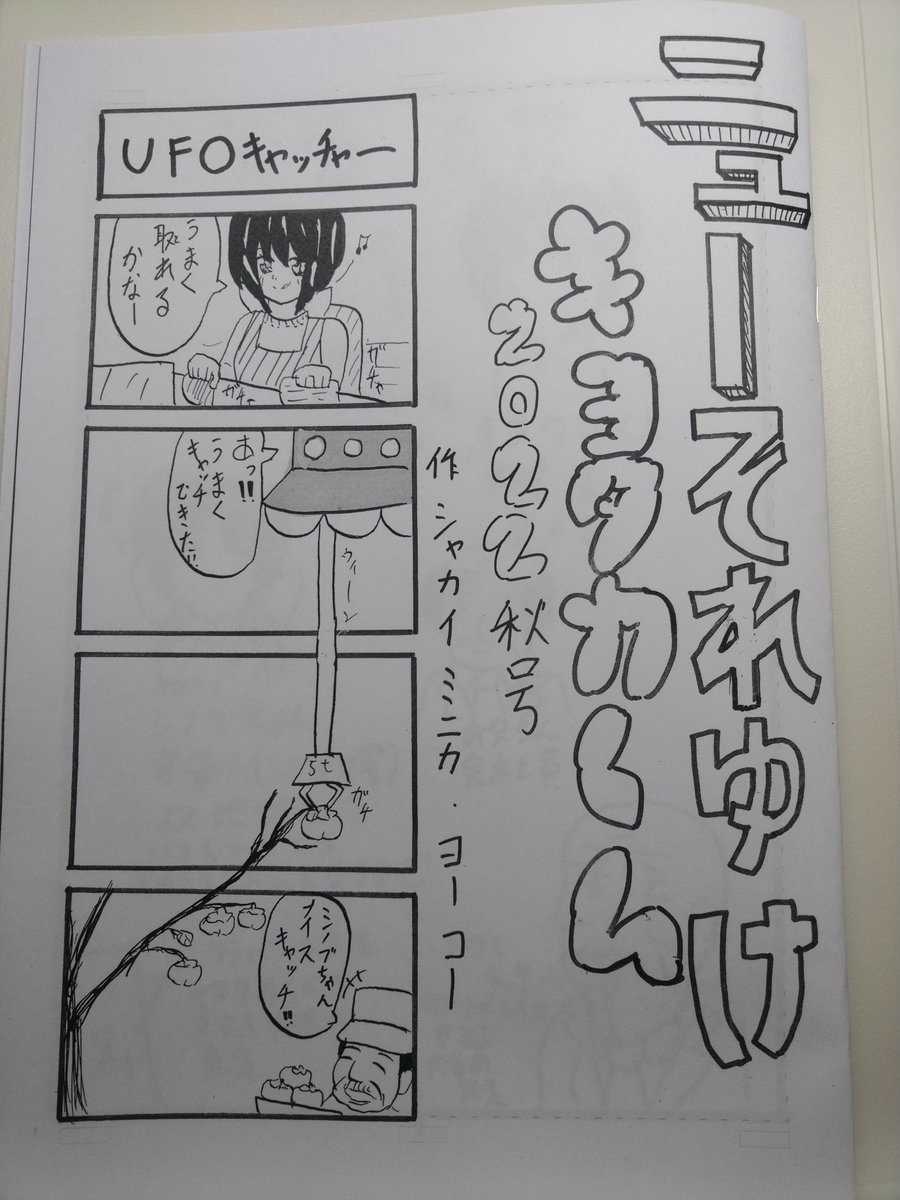 ニューそれゆけ
キヨタカくん
2022秋号
作 シャカイ ミミニカ・ヨーコー
UFOキャッチャー
うまく
取れる
かなー
♪
ガチャ
ガチャ
あっ!!
うまく
キャッチ
できた!!
ウィーン
5t
ガチ
シノブちゃん
ナイス
キャッチ!!